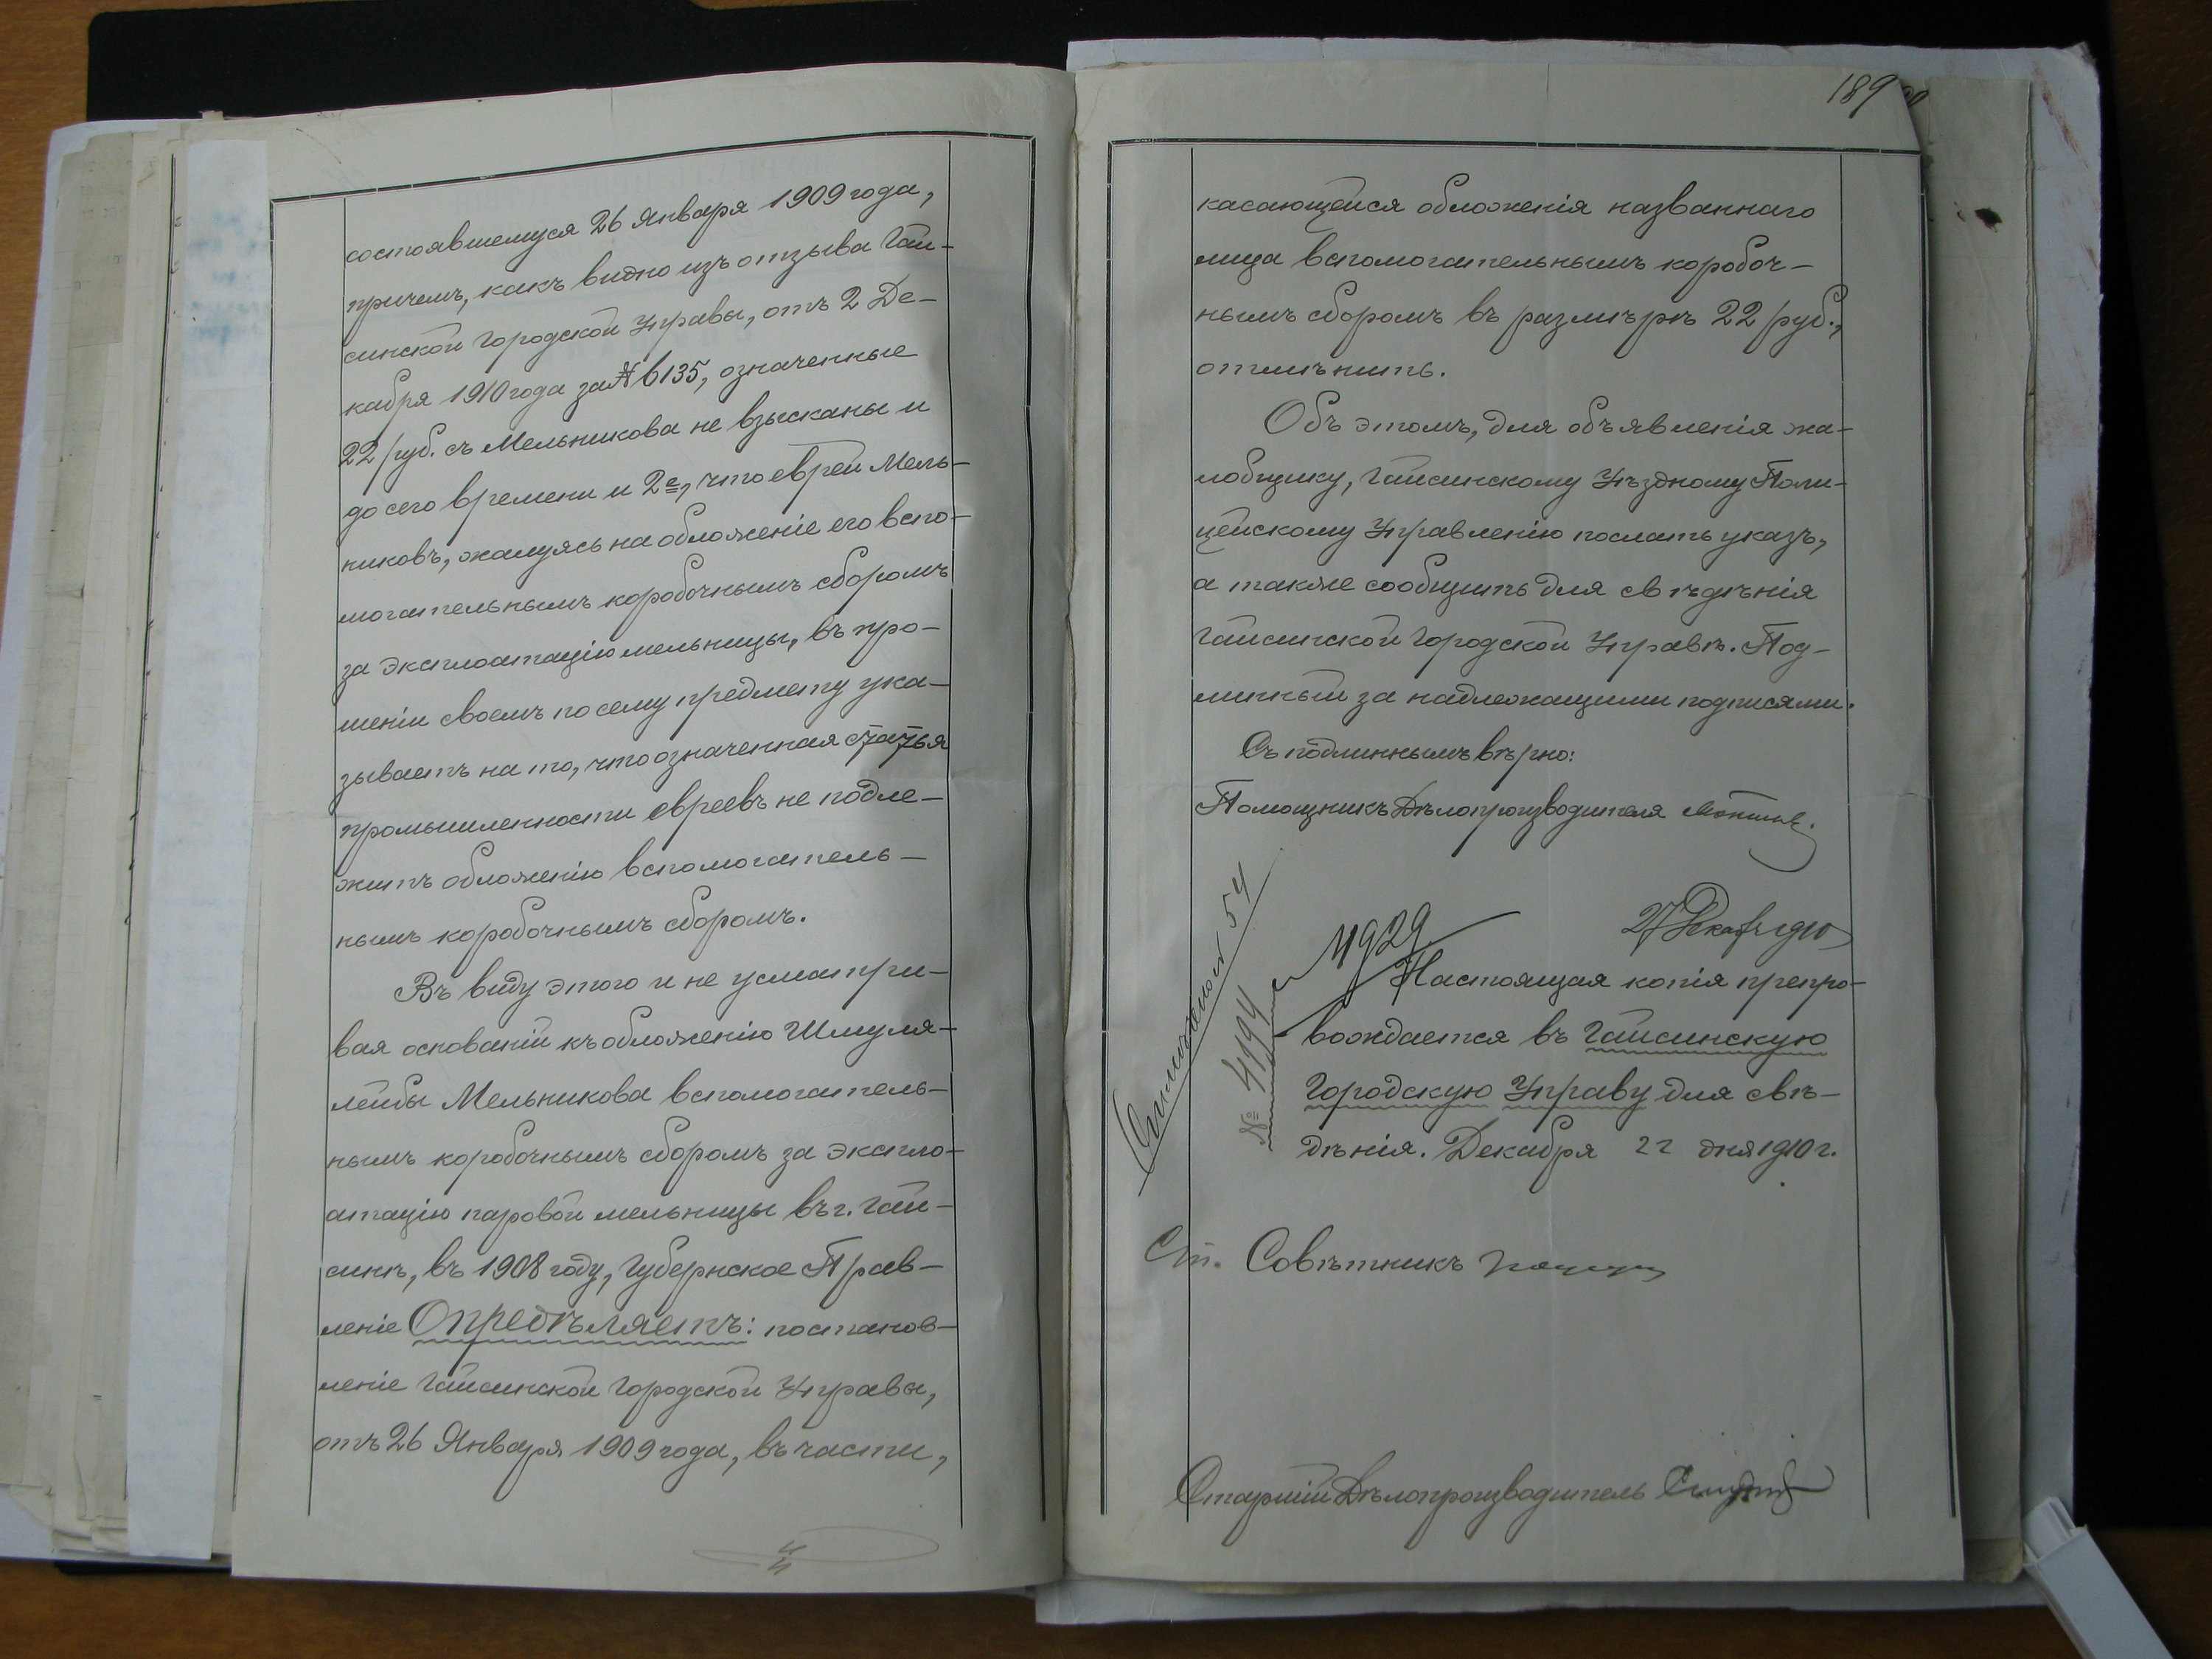 состоявшемуся 26 Января 1909 года,
причемъ, какъ видно изъ отзыва Гай-
синской Городской Управы, отъ 2 Де-
кабря 1910 года за № 6135, означенные
22 руб. съ Мельникова не взысканы и
до сего времени и 2е, что еврей Мель-
никовъ, жалуясь на обложеніе его вспо-
могательнымъ коробочнымъ сборомъ
за эксплоатацію мельницы, въ про-
шеніи своемъ по сему предмету ука-
зываетъ на то, что означенная статья
промышленности евреевъ не подле-
житъ обложенію вспомогатель-
нымъ коробочнымъ сборомъ.
Въ виду этого и не усматри-
вая основаній къ обложенію Шмуля-
Лейбы Мельникова вспомогатель-
нымъ коробочнымъ сборомъ за экспло-
атацію паровой мельницы въ г. Гай-
синѣ, въ 1908 году, Губернское Прав-
леніе Опредѣляетъ: постанов-
леніе Гайсинской Городской Управы,
отъ 26 Января 1909 года, въ части,
189
касающейся обложенія названнаго
лица вспомогательнымъ коробоч-
нымъ сборомъ въ размѣрѣ 22 руб.,
отмѣнить.
Объ этомъ, для объявленія жа-
лобщику, Гайсинскому Уѣздному Поли-
цейскому Управленію послать указъ,
а также сообщить для свѣдѣнія
Гайсинской Городской Управѣ. Под-
линный за надлежащими подписями.
Съ подлиннымъ вѣрно:
Помощникъ Дѣлопроизводителя
4929
27 Декаб 1910
Настоящая копія препро-
вождается въ Гайсинскую
Городскую Управу для свѣ-
дѣнія. Декабря 22 дня 1910 г.
№ 4194
Ст. Совѣтникъ
Старшій Дѣлопроизводитель